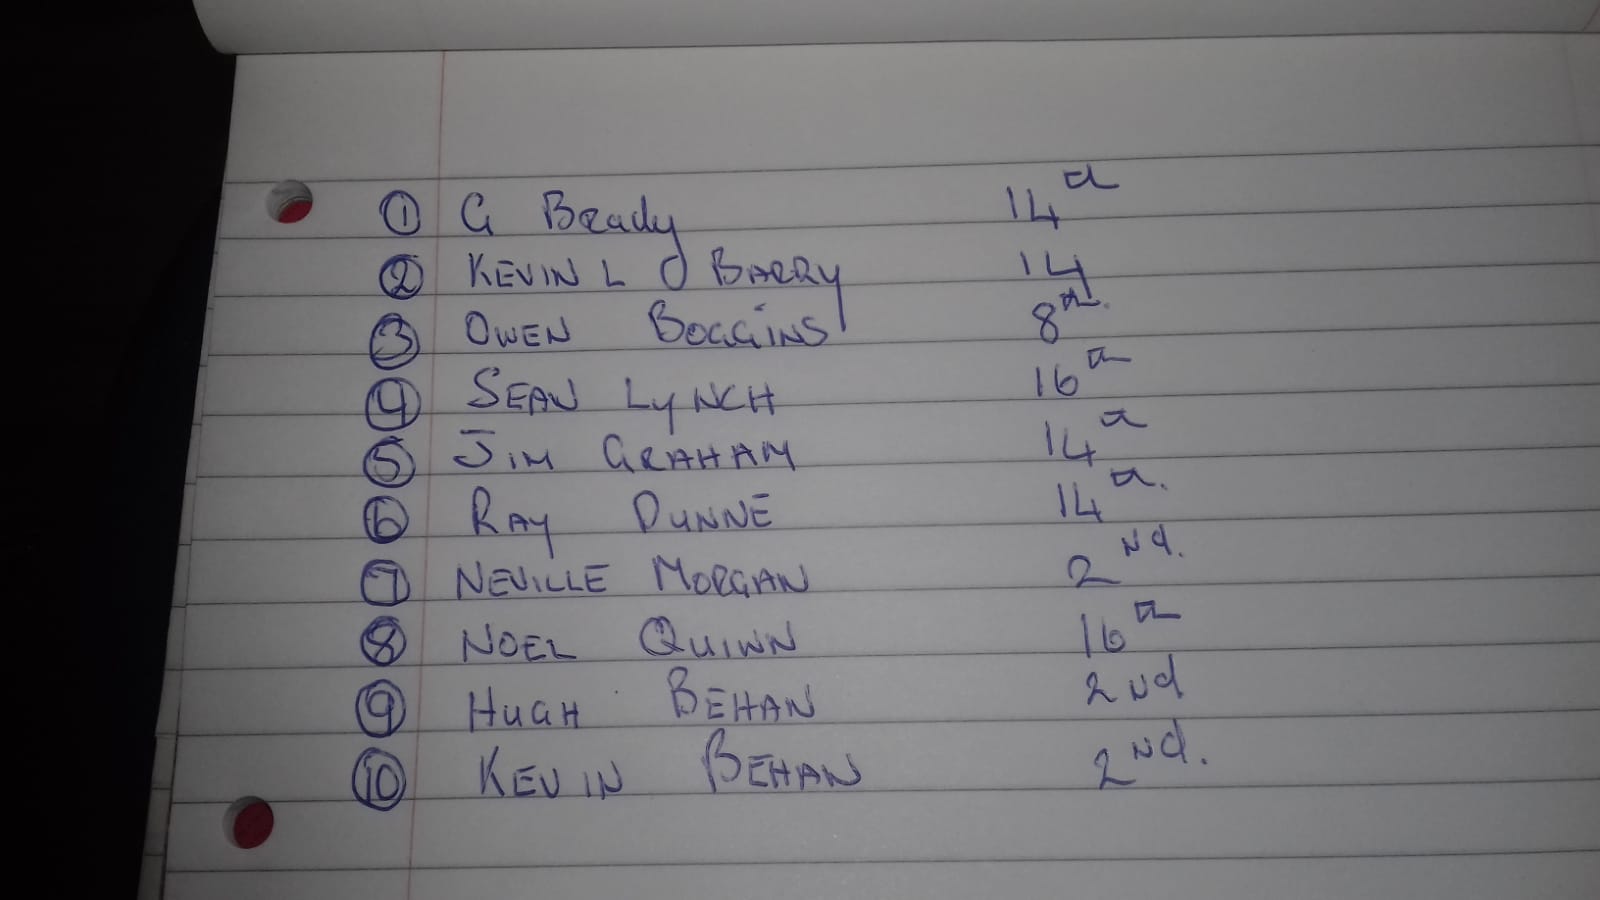 1 G Brady 14th
2 KEVIN L O BARRY 14
3 OWEN BOGGINS 8th.
4 SEAN LYNCH 16th
5 JIM GRAHAM 14th
6 RAY DUNNE 14th.
7 NEVILLE MORGAN 2nd.
8 NOEL QUINN 16th
9 HUGH BEHAN 2nd
10 KEVIN BEHAN 2nd.